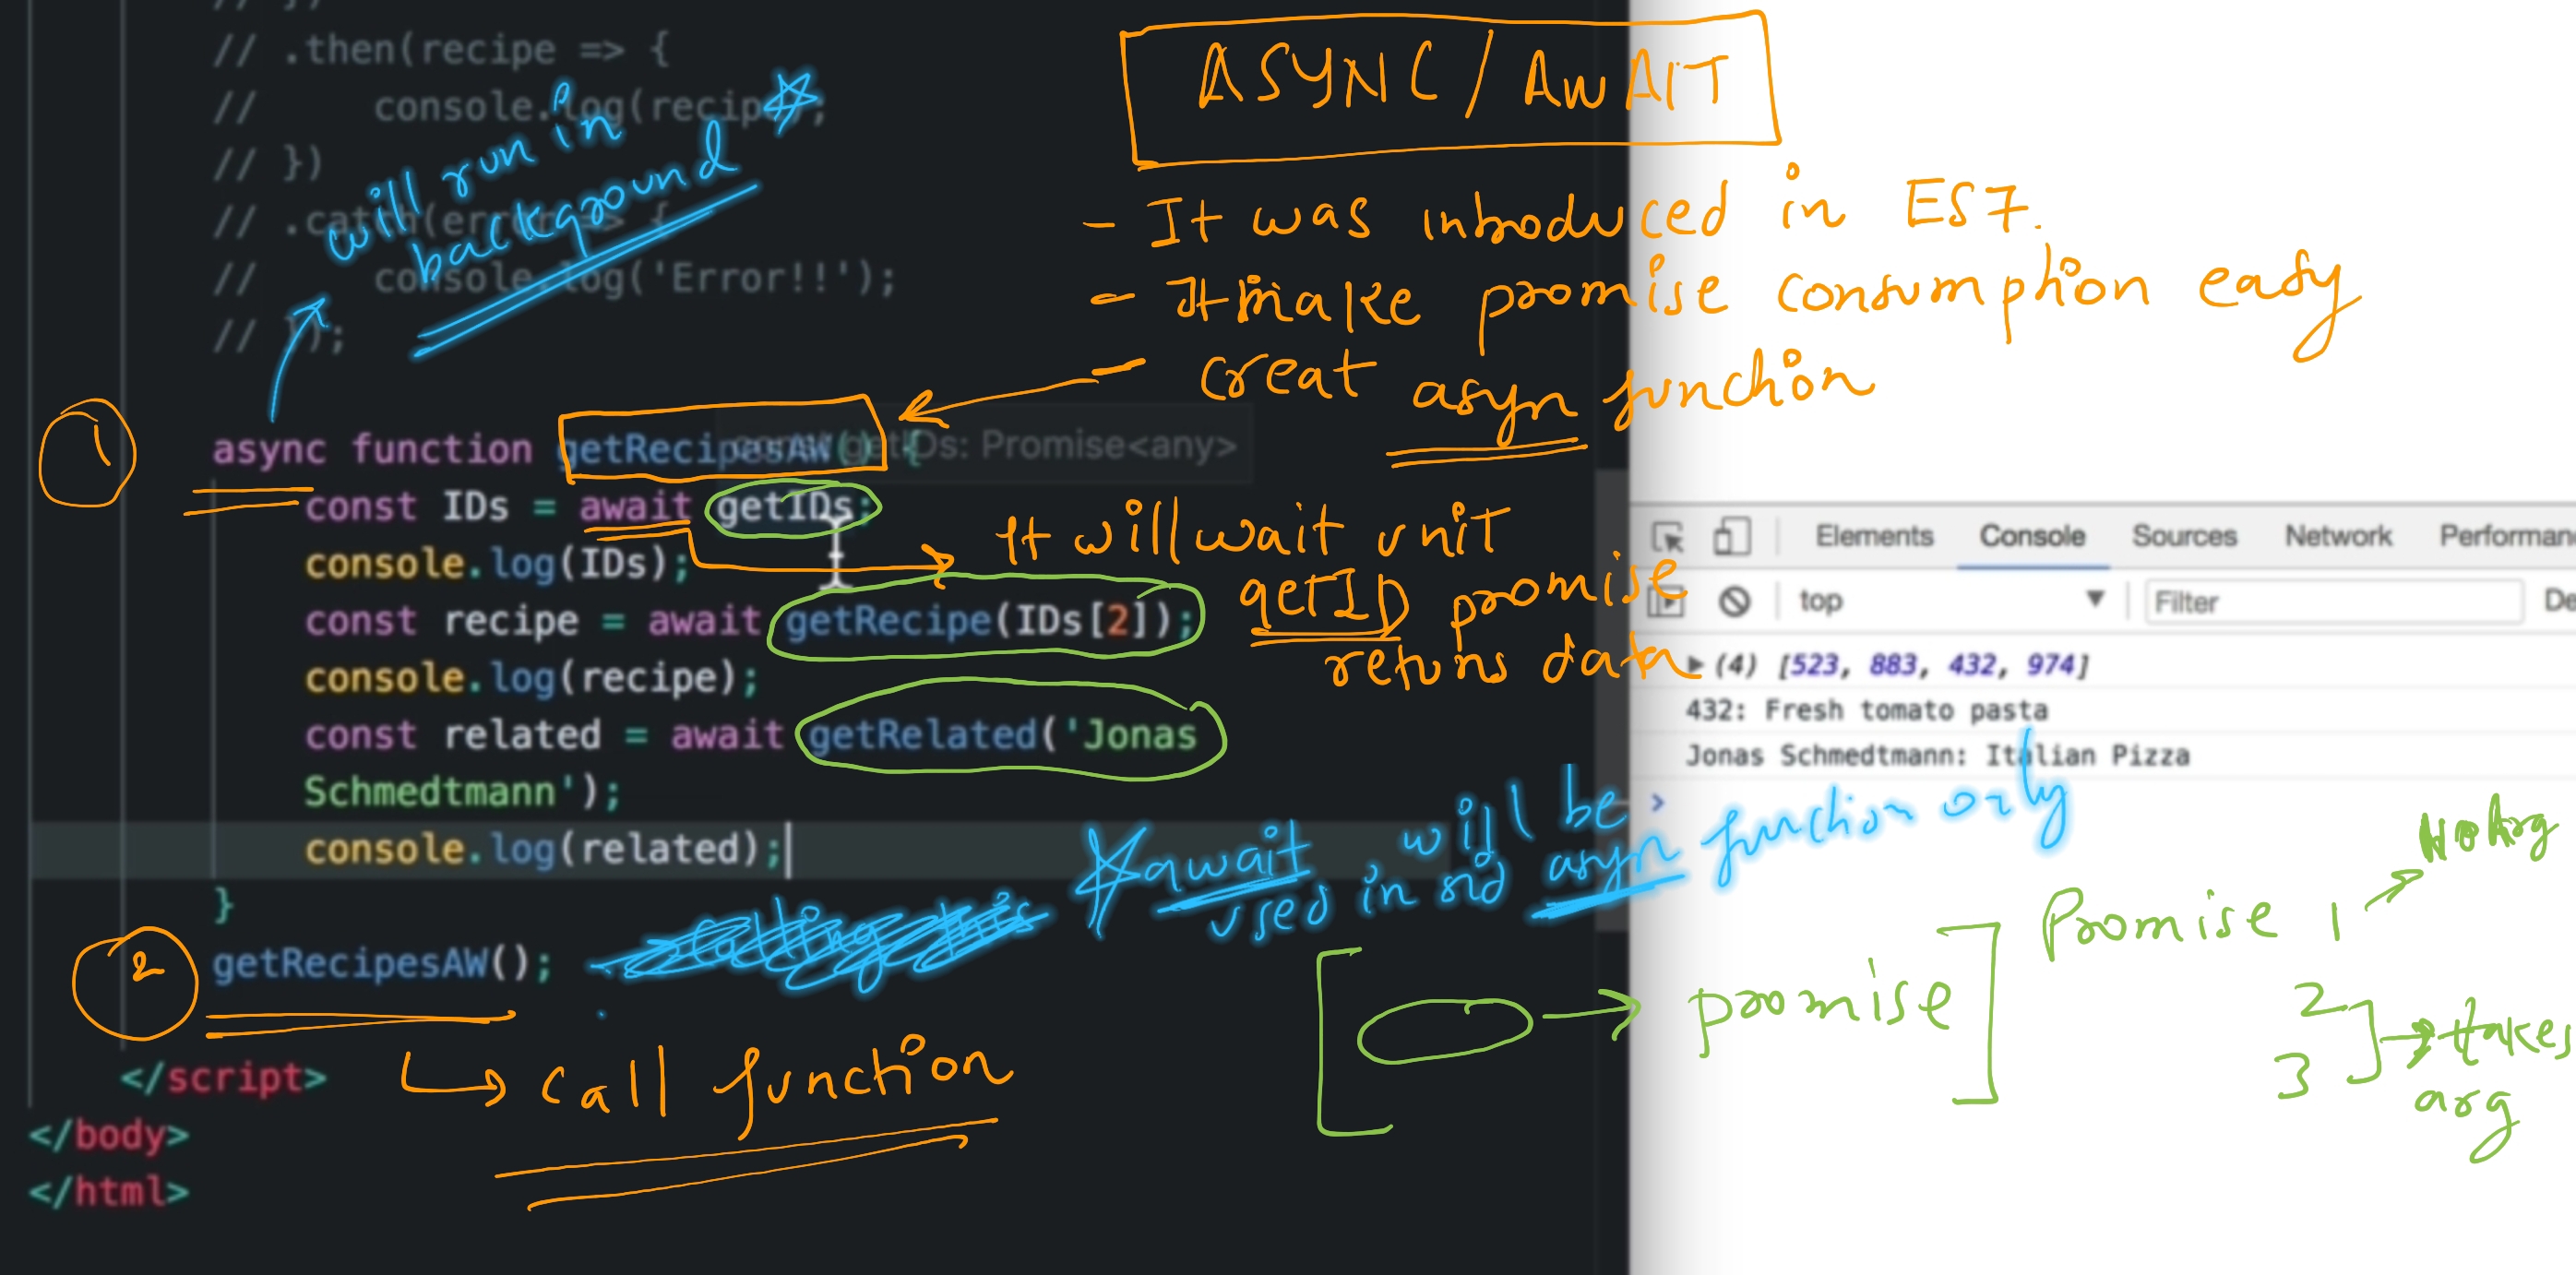 // })
// .then(recipe => {
// console.log(recipe);
// })
// .catch(error => {
// console.log('Error!!');
// });
will run in
background
ASYNC / AWAIT
- It was introduced in ES7.
- It make promise consumption easy
- creat asyn function
1
async function getRecipesAW() {
const getIDs: Promise<any>
const IDs = await getIDs;
console.log(IDs);
const recipe = await getRecipe(IDs[2]);
console.log(recipe);
const related = await getRelated('Jonas
Schmedtmann');
console.log(related);
}
2
getRecipesAW();
</script>
</body>
</html>
It will wait unit
getID promise
retuns data
calling this
await will be
used in sid asyn function only
call function
Elements Console Sources Network Performan
top Filter De
(4) [523, 883, 432, 974]
432: Fresh tomato pasta
Jonas Schmedtmann: Italian Pizza
promise
Promise 1
2
3
takes
arg